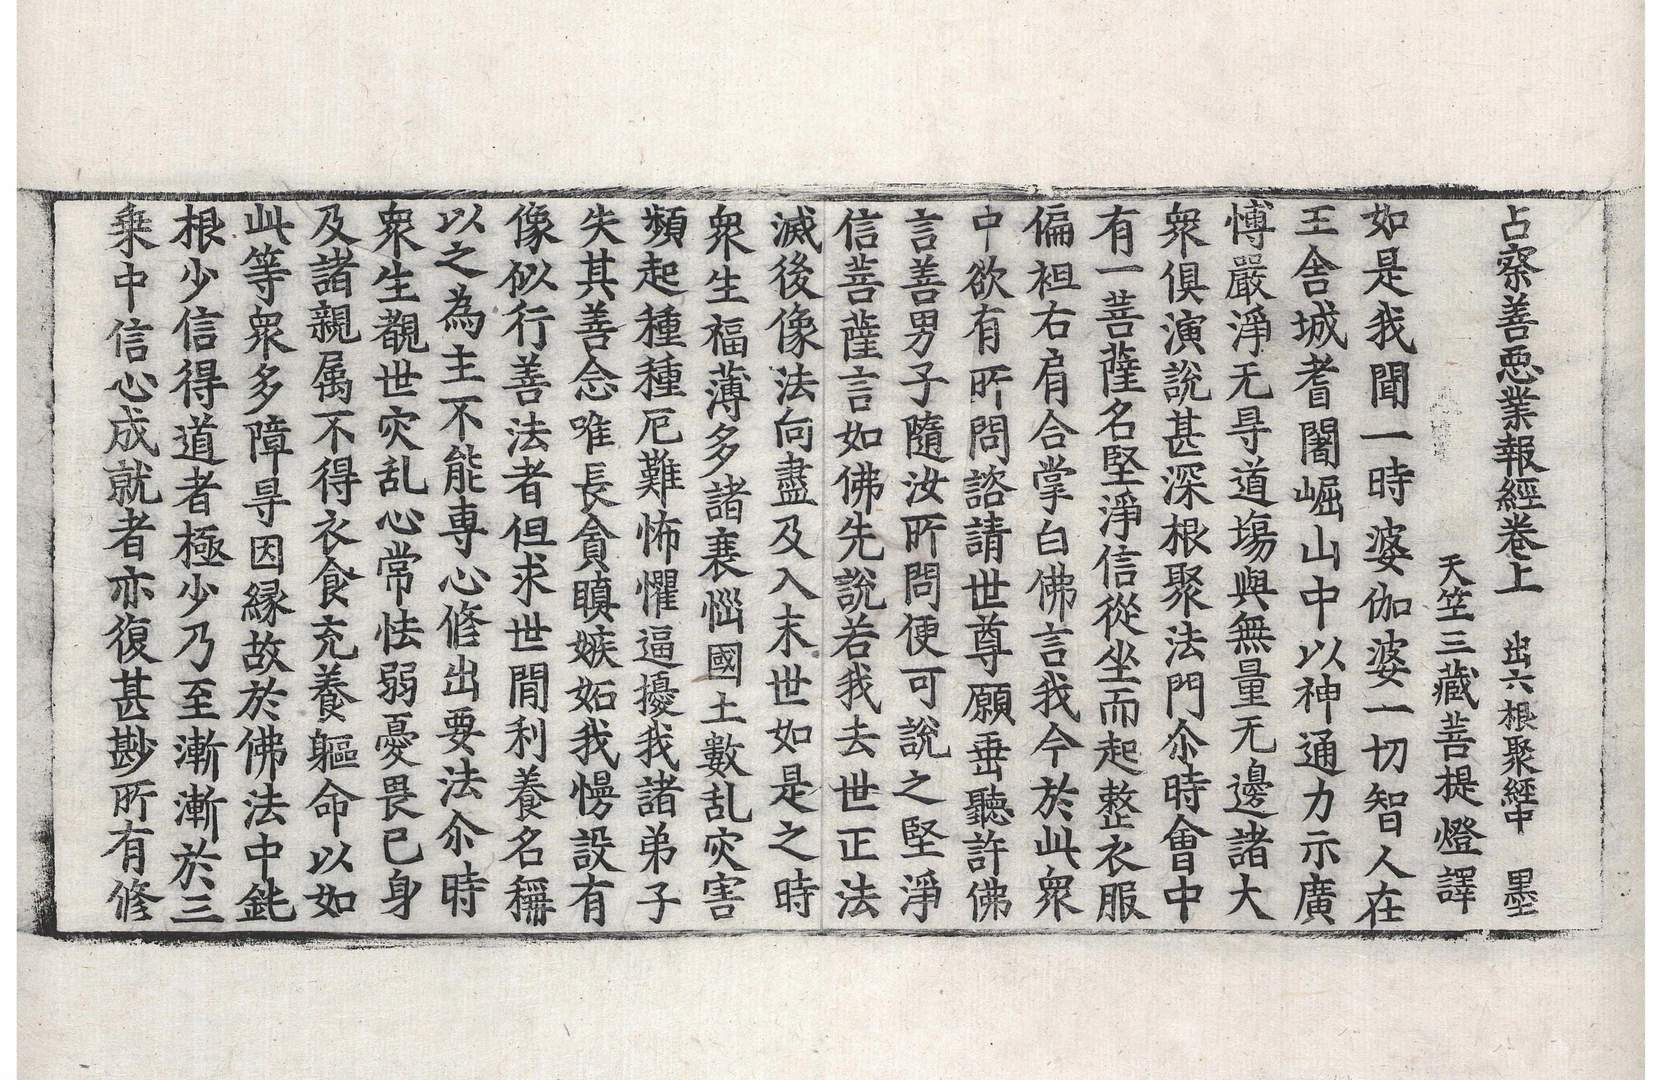 占察善悪業報經卷上 出六根聚経中 墨
天竺三藏菩提燈譯
如是我聞一時婆伽婆一切智人在
王舍城耆闍崛山中以神通力示廣
愽嚴淨无㝵道塲與無量无邊諸大
衆俱演說甚深根聚法門尒時會中
有一菩薩名堅淨信從坐而起整衣服
偏袒右肩合掌白佛言我今於此衆
中欲有所問諮請世尊願垂聽許佛
言善男子隨汝所問便可說之堅淨
信菩薩言如佛先說若我去世正法
滅後像法向盡及入末世如是之時
衆生福薄多諸衰惱國土數乱灾害
頻起種種厄難怖懼逼擾我諸弟子
失其善念唯長貪瞋嫉妬我慢設有
像似行善法者但求世間利養名稱
以之為主不能専心修出要法尒時
衆生覩世灾乱心常怯弱憂畏已身
及諸親属不得衣食充養軀命以如
此等衆多障㝵因縁故於佛法中鈍
根少信得道者極少乃至漸漸於三
乗中信心成就者亦復甚尠所有修